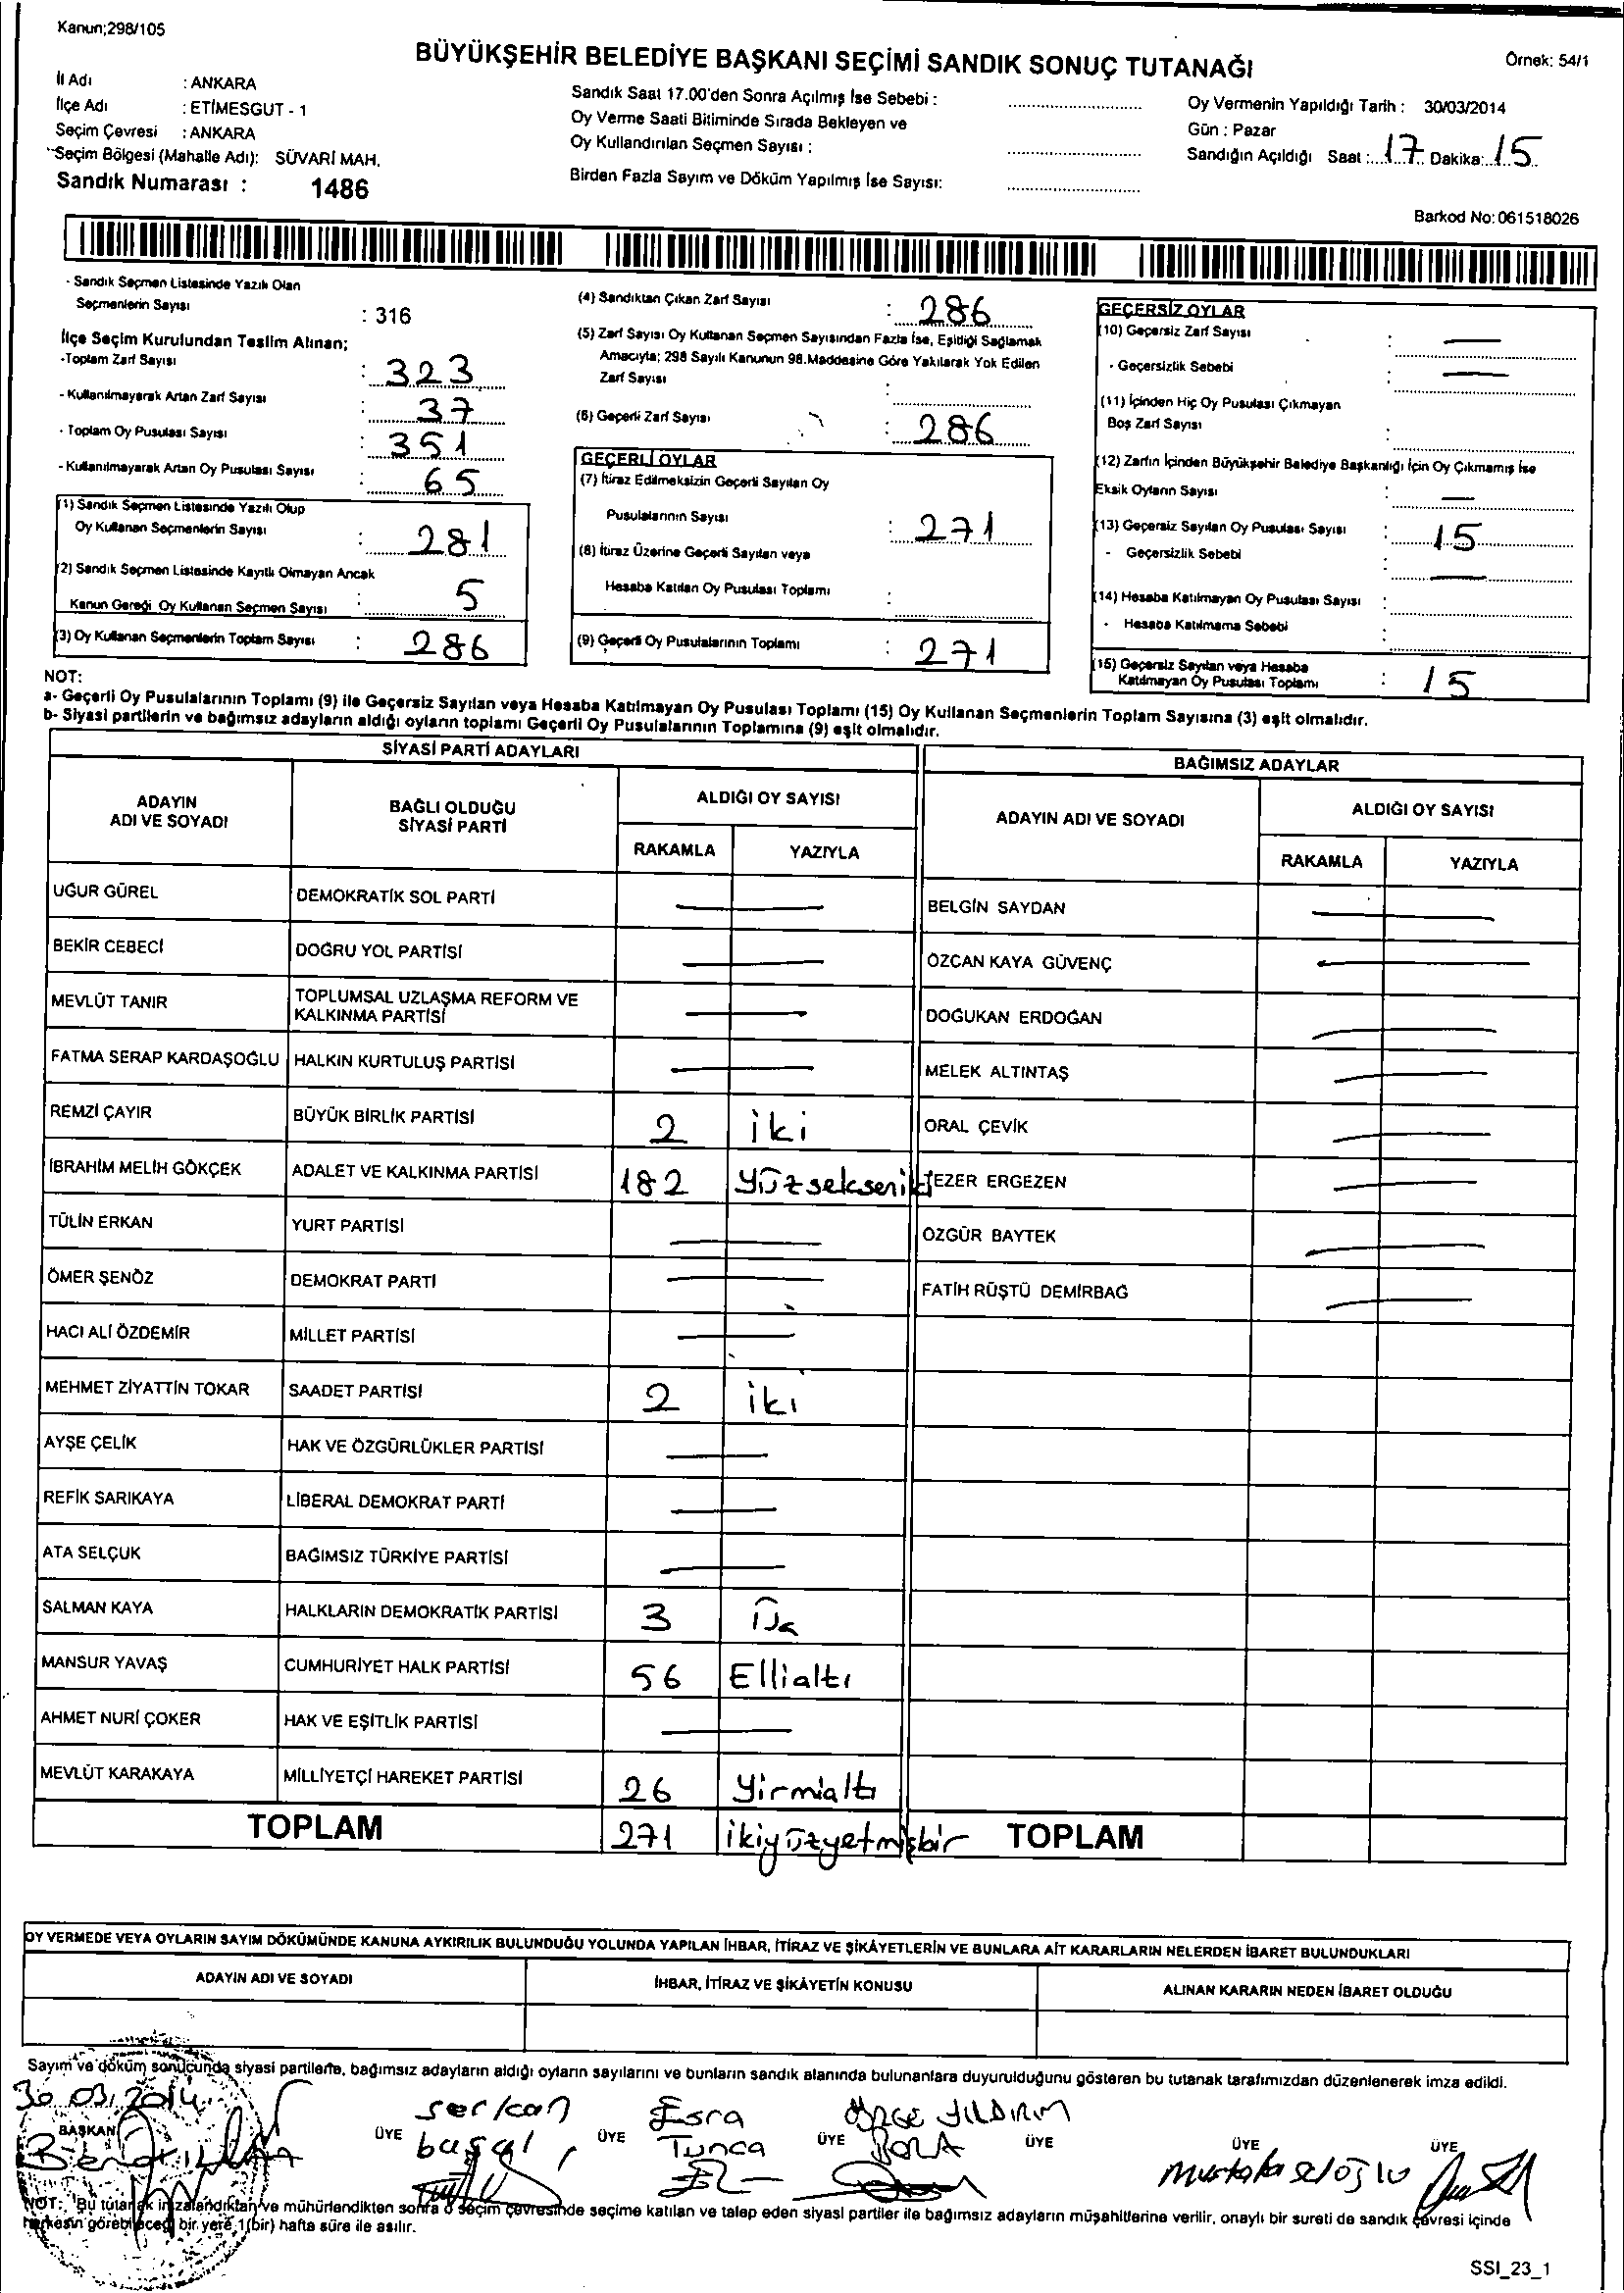 Kanun;298/105
BÜYÜKŞEHİR BELEDİYE BAŞKANI SEÇİMİ SANDIK SONUÇ TUTANAĞI
Örnek: 54/1
İl Adı : ANKARA
İlçe Adı : ETİMESGUT - 1
Seçim Çevresi : ANKARA
Seçim Bölgesi (Mahalle Adı): SÜVARİ MAH.
Sandık Numarası : 1486
Sandık Saat 17.00'den Sonra Açılmış İse Sebebi :
Oy Verme Saati Bitiminde Sırada Bekleyen ve
Oy Kullandırılan Seçmen Sayısı :
Birden Fazla Sayım ve Döküm Yapılmış İse Sayısı:
Oy Vermenin Yapıldığı Tarih : 30/03/2014
Gün : Pazar
Sandığın Açıldığı Saat : 17 Dakika: 15
Barkod No: 061518026
- Sandık Seçmen Listesinde Yazılı Olan
Seçmenlerin Sayısı : 316
İlçe Seçim Kurulundan Teslim Alınan;
-Toplam Zarf Sayısı : 323
- Kullanılmayarak Artan Zarf Sayısı : 37
- Toplam Oy Pusulası Sayısı : 351
- Kullanılmayarak Artan Oy Pusulası Sayısı : 65
(1) Sandık Seçmen Listesinde Yazılı Olup
Oy Kullanan Seçmenlerin Sayısı : 281
(2) Sandık Seçmen Listesinde Kayıtlı Olmayan Ancak
Kanun Gereği Oy Kullanan Seçmen Sayısı : 5
(3) Oy Kullanan Seçmenlerin Toplam Sayısı : 286
(4) Sandıktan Çıkan Zarf Sayısı : 286
(5) Zarf Sayısı Oy Kullanan Seçmen Sayısından Fazla İse, Eşitliği Sağlamak
Amacıyla; 298 Sayılı Kanunun 98.Maddesine Göre Yakılarak Yok Edilen
Zarf Sayısı :
(6) Geçerli Zarf Sayısı : 286
GEÇERLİ OYLAR
(7) İtiraz Edilmeksizin Geçerli Sayılan Oy
Pusulalarının Sayısı : 271
(8) İtiraz Üzerine Geçerli Sayılan veya
Hesaba Katılan Oy Pusulası Toplamı :
(9) Geçerli Oy Pusulalarının Toplamı : 271
GEÇERSİZ OYLAR
(10) Geçersiz Zarf Sayısı : —
- Geçersizlik Sebebi : —
(11) İçinden Hiç Oy Pusulası Çıkmayan
Boş Zarf Sayısı :
(12) Zarfın İçinden Büyükşehir Belediye Başkanlığı İçin Oy Çıkmamış İse
Eksik Oyların Sayısı : —
(13) Geçersiz Sayılan Oy Pusulası Sayısı : 15
- Geçersizlik Sebebi : —
(14) Hesaba Katılmayan Oy Pusulası Sayısı :
- Hesaba Katılmama Sebebi :
(15) Geçersiz Sayılan veya Hesaba
Katılmayan Oy Pusulası Toplamı : 15
NOT:
a- Geçerli Oy Pusulalarının Toplamı (9) ile Geçersiz Sayılan veya Hesaba Katılmayan Oy Pusulası Toplamı (15) Oy Kullanan Seçmenlerin Toplam Sayısına (3) eşit olmalıdır.
b- Siyasi partilerin ve bağımsız adayların aldığı oyların toplamı Geçerli Oy Pusulalarının Toplamına (9) eşit olmalıdır.
SİYASİ PARTİ ADAYLARI
ADAYIN ADI VE SOYADI
BAĞLI OLDUĞU SİYASİ PARTİ
ALDIĞI OY SAYISI
RAKAMLA YAZIYLA
UĞUR GÜREL DEMOKRATİK SOL PARTİ —
BEKİR CEBECİ DOĞRU YOL PARTİSİ —
MEVLÜT TANIR TOPLUMSAL UZLAŞMA REFORM VE KALKINMA PARTİSİ —
FATMA SERAP KARDAŞOĞLU HALKIN KURTULUŞ PARTİSİ —
REMZİ ÇAYIR BÜYÜK BİRLİK PARTİSİ 2 iki
İBRAHİM MELİH GÖKÇEK ADALET VE KALKINMA PARTİSİ 182 yüzsekseniki
TÜLİN ERKAN YURT PARTİSİ —
ÖMER ŞENÖZ DEMOKRAT PARTİ —
HACI ALİ ÖZDEMİR MİLLET PARTİSİ —
MEHMET ZİYATTİN TOKAR SAADET PARTİSİ 2 iki
AYŞE ÇELİK HAK VE ÖZGÜRLÜKLER PARTİSİ —
REFİK SARIKAYA LİBERAL DEMOKRAT PARTİ —
ATA SELÇUK BAĞIMSIZ TÜRKİYE PARTİSİ —
SALMAN KAYA HALKLARIN DEMOKRATİK PARTİSİ 3 Üç
MANSUR YAVAŞ CUMHURİYET HALK PARTİSİ 56 Ellialtı
AHMET NURİ ÇOKER HAK VE EŞİTLİK PARTİSİ —
MEVLÜT KARAKAYA MİLLİYETÇİ HAREKET PARTİSİ 26 Yirmialtı
TOPLAM 271 ikiyüzyetmişbir
BAĞIMSIZ ADAYLAR
ADAYIN ADI VE SOYADI
ALDIĞI OY SAYISI
RAKAMLA YAZIYLA
BELGİN SAYDAN —
ÖZCAN KAYA GÜVENÇ —
DOĞUKAN ERDOĞAN —
MELEK ALTINTAŞ —
ORAL ÇEVİK —
TEZER ERGEZEN —
ÖZGÜR BAYTEK —
FATİH RÜŞTÜ DEMİRBAĞ —
TOPLAM
OY VERMEDE VEYA OYLARIN SAYIM DÖKÜMÜNDE KANUNA AYKIRILIK BULUNDUĞU YOLUNDA YAPILAN İHBAR, İTİRAZ VE ŞİKÂYETLERİN VE BUNLARA AİT KARARLARIN NELERDEN İBARET BULUNDUKLARI
ADAYIN ADI VE SOYADI
İHBAR, İTİRAZ VE ŞİKÂYETİN KONUSU
ALINAN KARARIN NEDEN İBARET OLDUĞU
Sayım ve döküm sonucunda siyasi partilerle, bağımsız adayların aldığı oyların sayılarını ve bunların sandık alanında bulunanlara duyurulduğunu gösteren bu tutanak tarafımızdan düzenlenerek imza edildi.
30.03.2014
BAŞKAN
ÜYE serkan
ÜYE Esra Tunca
ÜYE YILDIRIM
ÜYE
ÜYE
ÜYE
NOT: Bu tutanak imzalandıktan ve mühürlendikten sonra o seçim çevresinde seçime katılan ve talep eden siyasi partiler ile bağımsız adayların müşahitlerine verilir, onaylı bir sureti de sandık çevresi içinde
herkesin görebileceği bir yere 1(bir) hafta süre ile asılır.
SSI_23_1